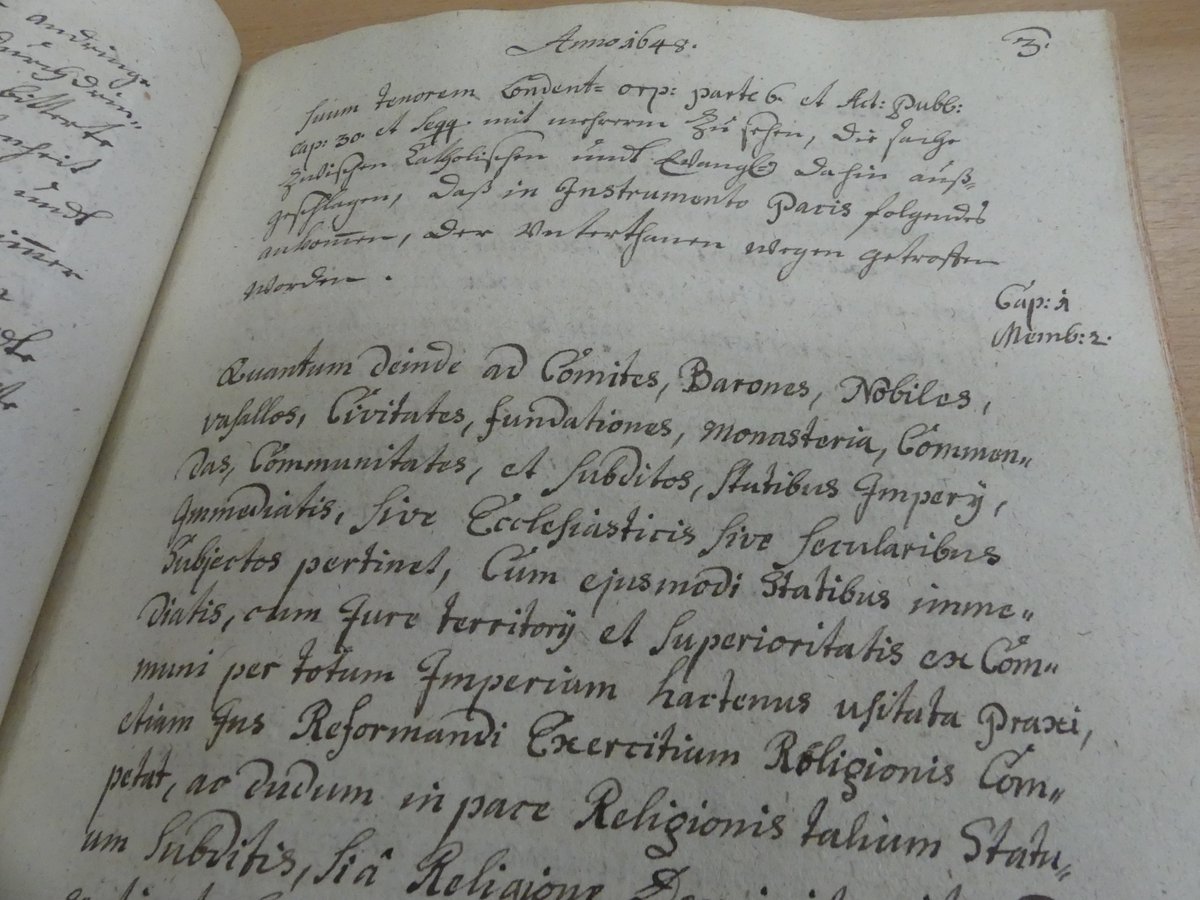 andringe
durch drin„
bittert
enheit
undt
immer
Anno 1648.
3.
suum tenorem Condent= orp: parte 6. et Act: Publ:
cap: 30. et seqq. mit mehrerm zu sehen, die sache
zwischen Catholischen undt Evangl: dahin auß„
geschlagen, daß in Instrumento Pacis folgendes
ankommen, der Unterthanen wegen getroffen
worden.
Cap: 1
Memb: 2.
Quantum deinde ad Comites, Barones, Nobiles,
vasallos, Civitates, fundationes, Monasteria, Commen„
das, Communitates, et subditos, Statibus Imperÿ,
Immediatis, sive Ecclesiasticis sive secularibus
Subjectos pertinet, Cum ejusmodi Statibus imme„
diatis, cum Jure territorÿ et superioritatis ex Com„
muni per totum Imperium hactenus usitata Praxi,
etiam Jus Reformandi Exercitium Religionis Com„
petat, ac dudum in pace Religionis talium Statu„
um subditis, si â Religione